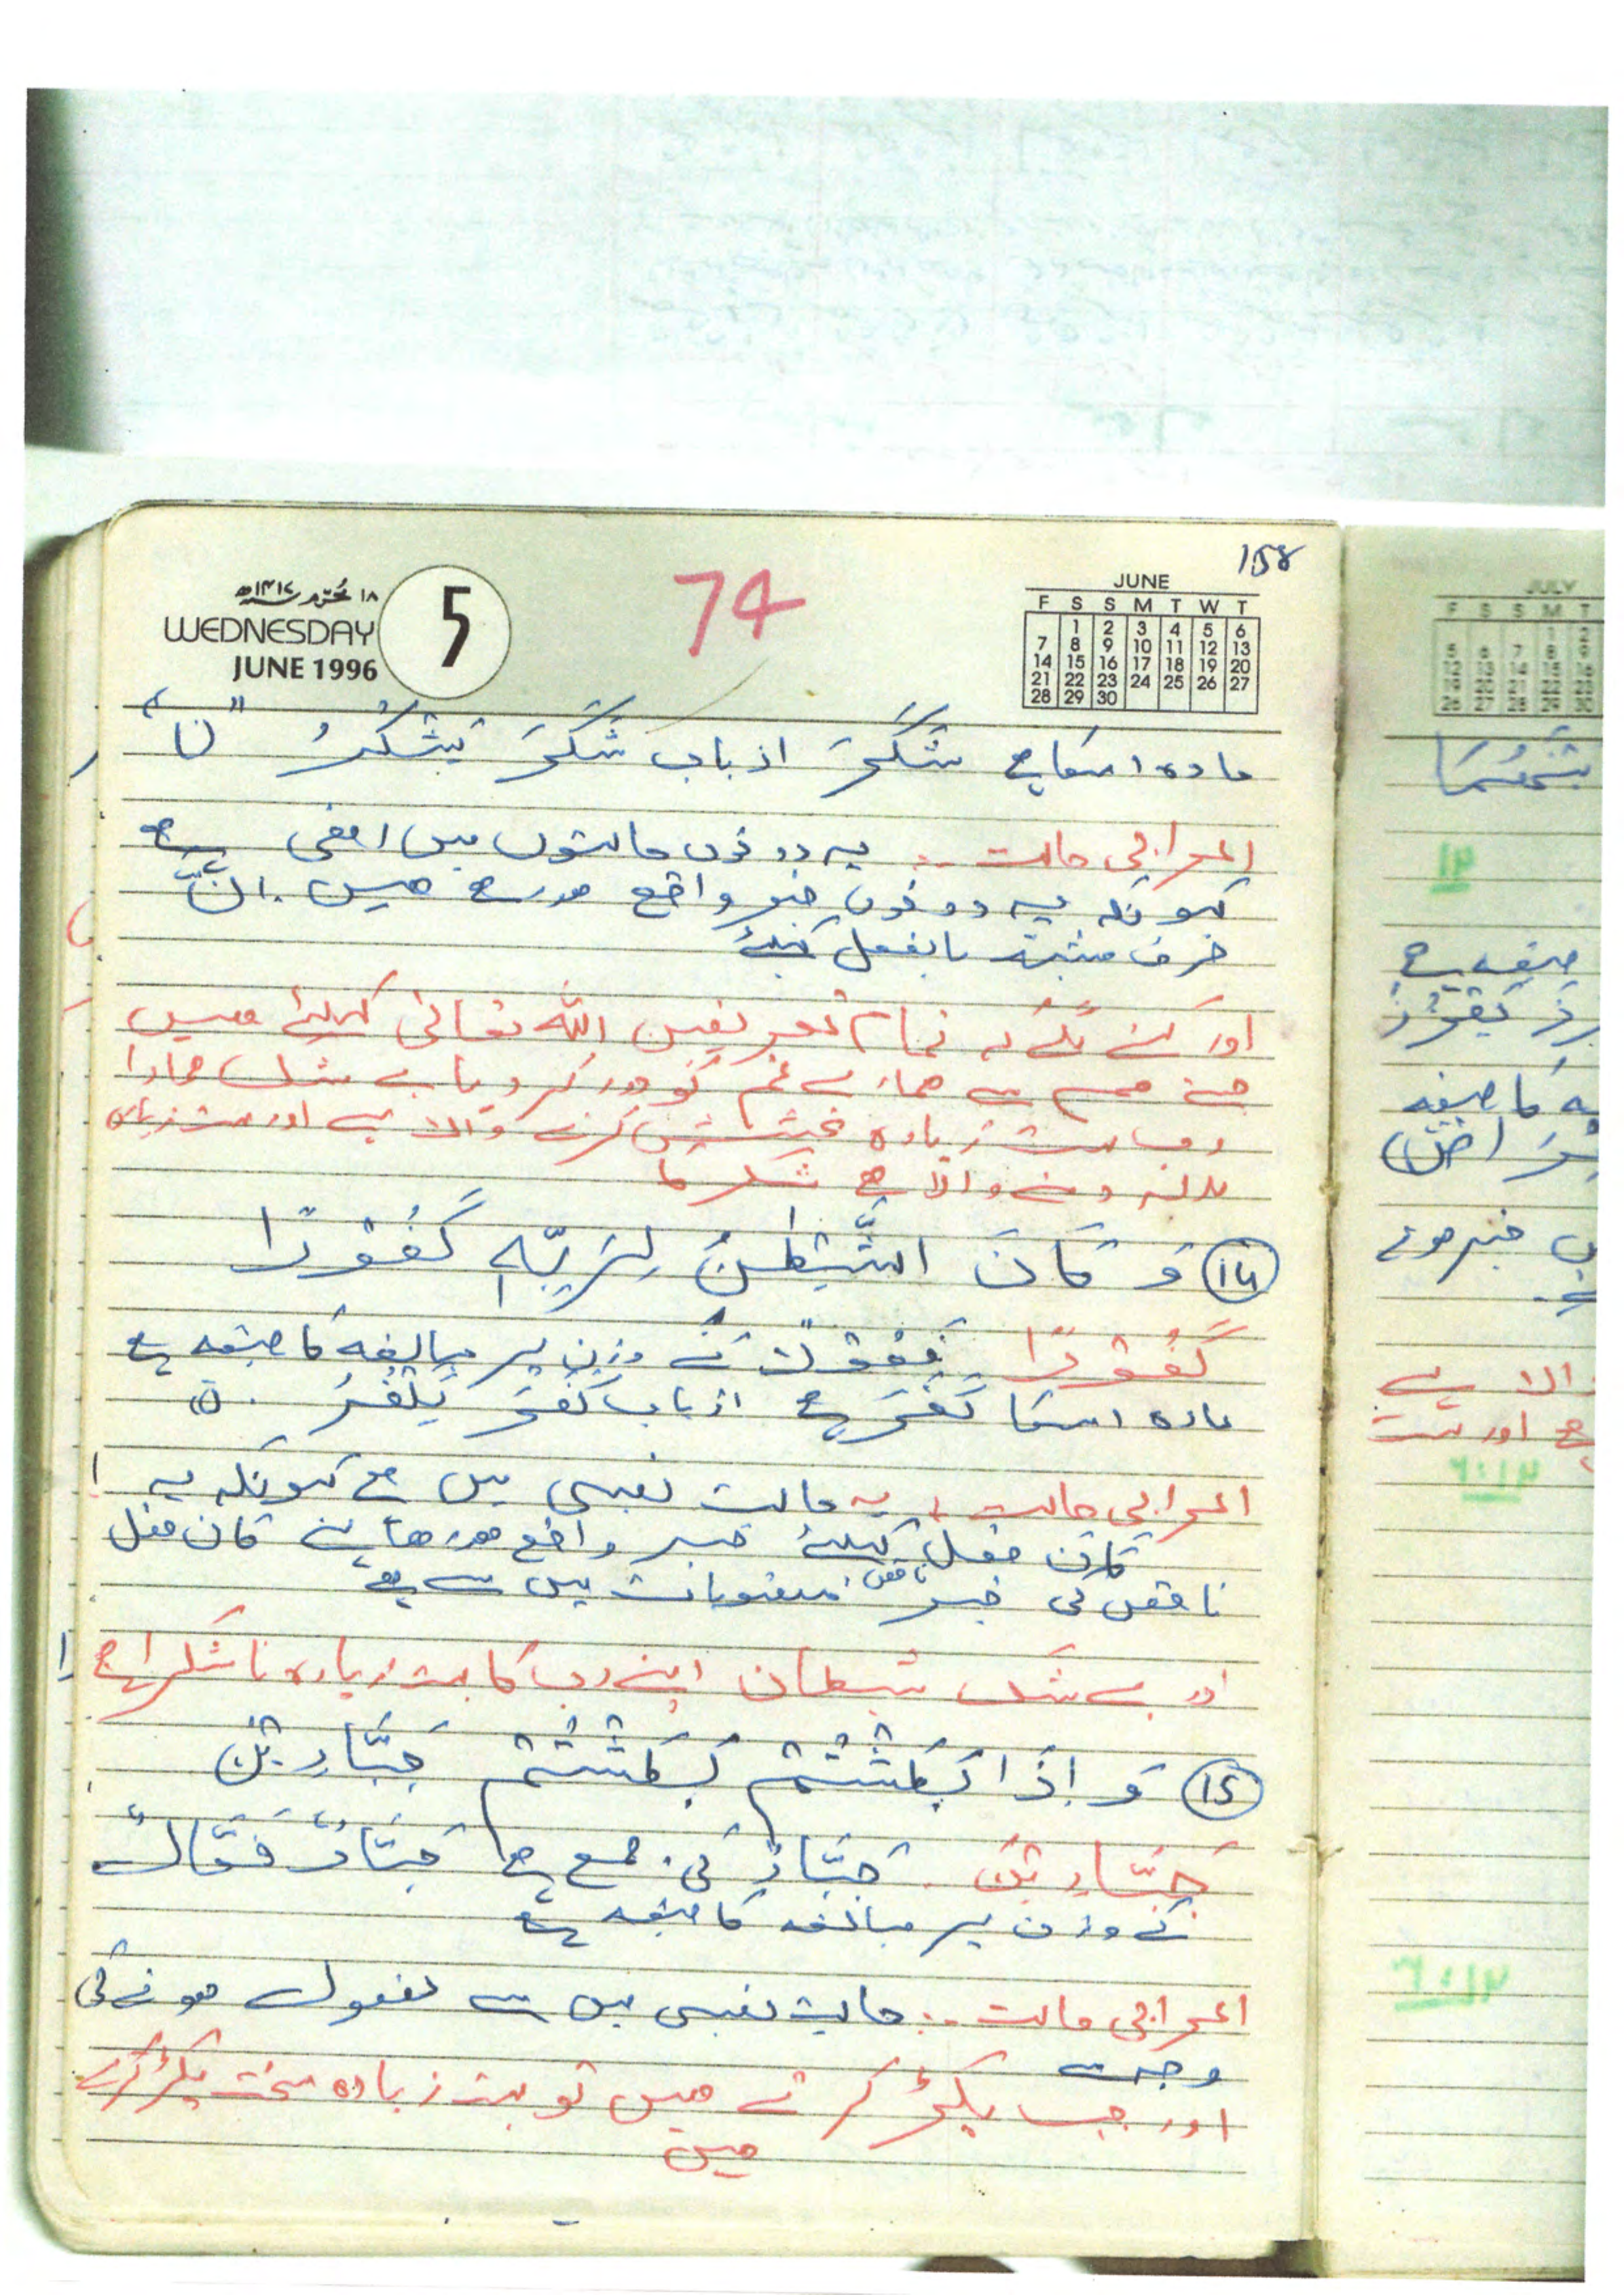 158
74
۱۸ محرم ۱۴۱۷ھ
WEDNESDAY
JUNE 1996
5
JUNE
F S S M T W T
1 2 3 4 5 6
7 8 9 10 11 12 13
14 15 16 17 18 19 20
21 22 23 24 25 26 27
28 29 30
مادہ اسکا ہے شَکَرَ از باب شَکَرَ یَشْکُرُ "ن"
اعرابی حالت :۔ یہ دونوں حالتوں میں رفعی ہے
کیونکہ یہ دونوں خبر واقع ہورہے ھیں۔ اِنَّ
حرف مشبہ بالفعل کیلئے
اور کہنے لگے کہ تمام تعریفیں اللّٰہ تعالیٰ کیلئے ھیں
جسنے ھم سے ھمارے غم کو دور کر دیا بے شک ھمارا
رب بہت زیادہ بخشش کرنے والا ہے اور بہت زیادہ
بدلہ دینے والا ہے شکر کا
(۱۴) وَ کَانَ الشَّیْطٰنُ لِرَبِّہٖ کَفُوْرًا
کَفُوْرًا فَعُوْلٌ کے وزن پر مبالغہ کا صیغہ ہے
مادہ اسکا کَفَرَ ہے از باب کَفَرَ یَکْفُرُ ۔ (ن)
اعرابی حالت :۔ یہ حالت نصبی میں ہے کیونکہ یہ
کَانَ فعل کیلئے خبر واقع ھورھا ہے کان فعل
ناقص کی خبر منصوبات میں سے ہے
اور بے شک شیطان اپنے رب کا بہت زیادہ ناشکرا ہے
(۱۵) وَ اِذَا بَطَشْتُمْ بَطَشْتُمْ جَبَّارِیْنَ
جَبَّارِیْنَ ۔ جَبَّارٌ کی جمع ہے جَبَّارٌ فَعَّالٌ
کے وزن پر مبالغہ کا صیغہ ہے
اعرابی حالت :۔ حالت نصبی میں ہے مفعول ھونے کی
وجہ سے
اور جب پکڑ کرتے ھیں تو بہت زیادہ سخت پکڑ کرتے
ھیں
JULY
صیغہ ہے
کا صیغہ
خبر ھونے
والا ہے
ہے اور بہت